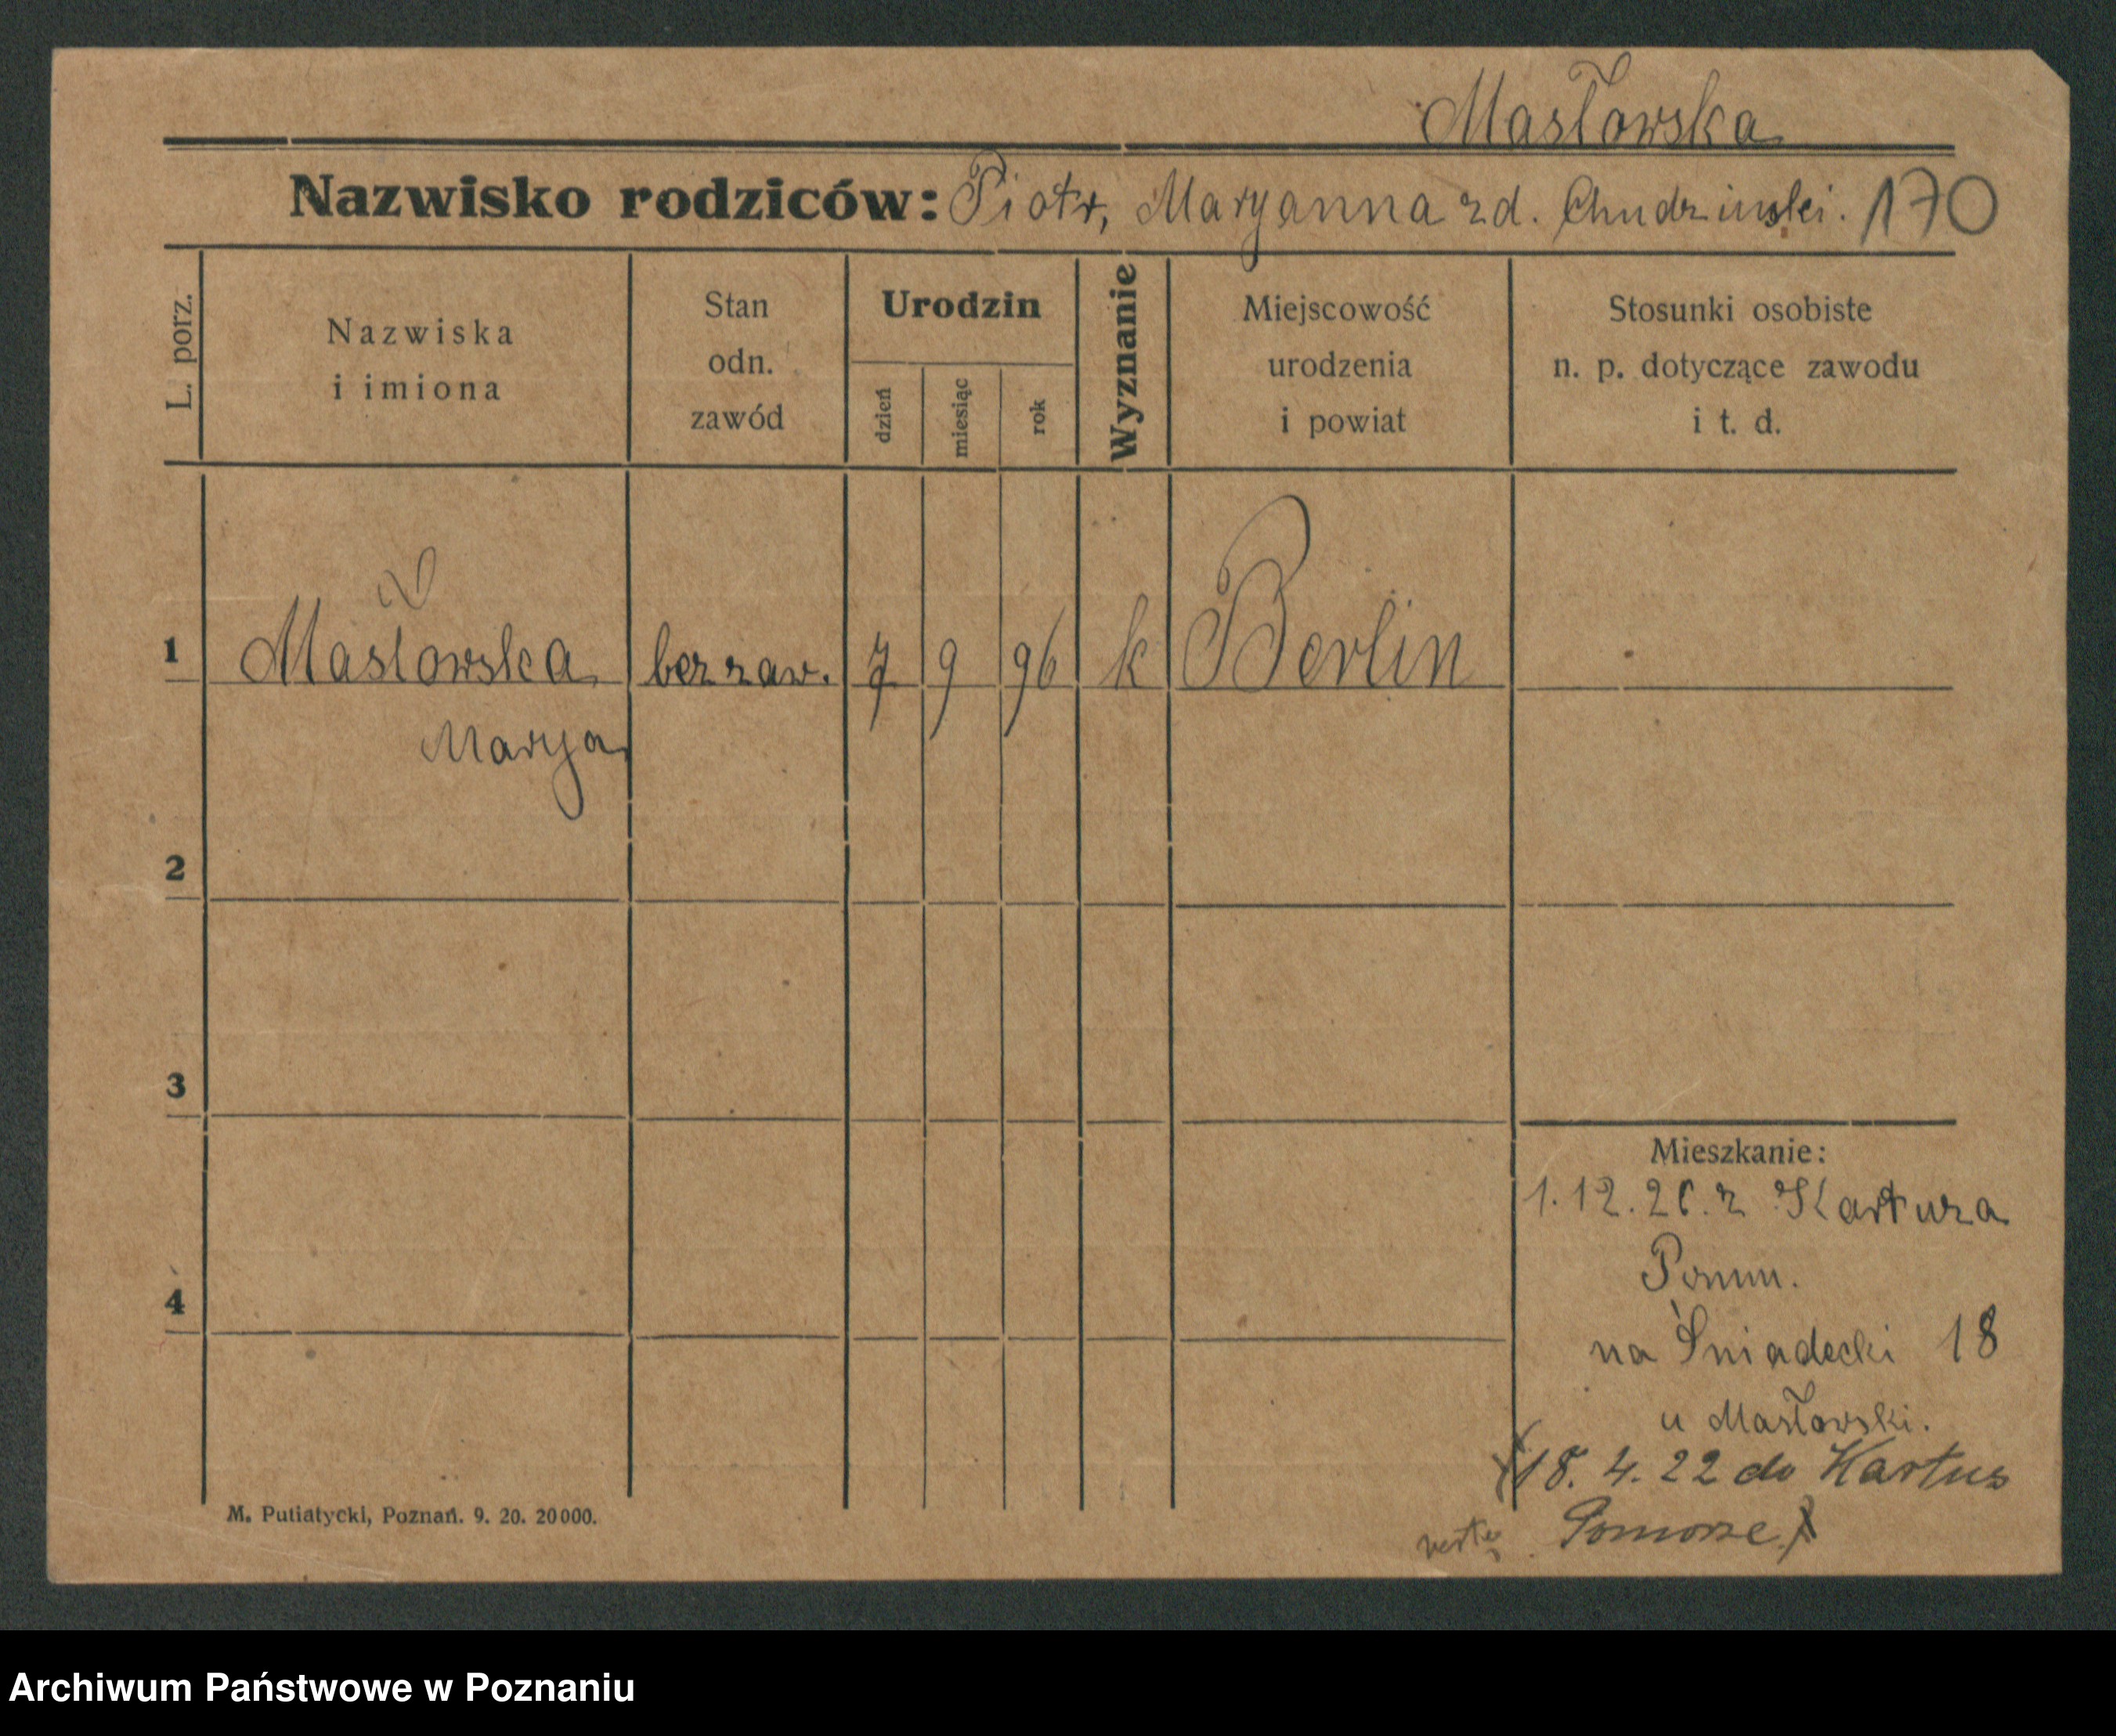 Masłowska
Nazwisko rodziców: Piotr, Maryanna zd. Chudzinski. 170
L. porz.
Nazwiska
i imiona
Stan
odn.
zawód
Urodzin
dzień
miesiąc
rok
Wyznanie
Miejscowość
urodzenia
i powiat
Stosunki osobiste
n. p. dotyczące zawodu
i t. d.
1 Masłowska bez zaw. 7 9 96 k Berlin
Marya
2
3
4
Mieszkanie:
1. 12. z Kartuza
Pomm.
na Śniadecki 18
u Masłowski.
18. 4. 22 do Kartus
Pomorze
M. Putiatycki, Poznań. 9. 20. 20000.
Archiwum Państwowe w Poznaniu